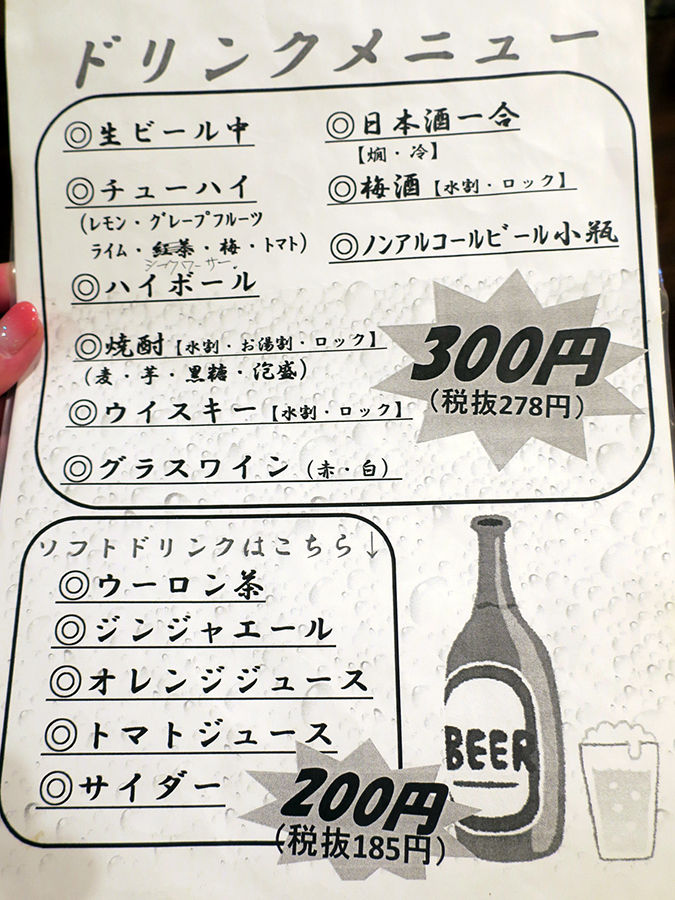 ドリンクメニュー
◎生ビール中
◎チューハイ
（レモン・グレープフルーツ
ライム・紅茶・梅・トマト）
シークワーサー
◎ハイボール
◎焼酎【水割・お湯割・ロック】
（麦・芋・黒糖・泡盛）
◎ウイスキー【水割・ロック】
◎グラスワイン（赤・白）
◎日本酒一合
【燗・冷】
◎梅酒【水割・ロック】
◎ノンアルコールビール小瓶
300円
（税抜278円）
ソフトドリンクはこちら↓
◎ウーロン茶
◎ジンジャエール
◎オレンジジュース
◎トマトジュース
◎サイダー
200円
（税抜185円）
BEER